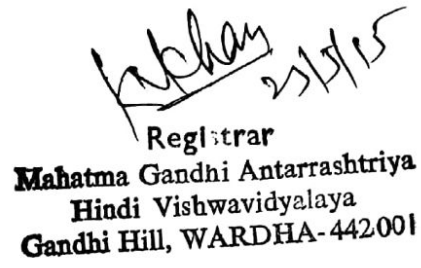 23/5/15
Registrar
Mahatma Gandhi Antarrashtriya
Hindi Vishwavidyalaya
Gandhi Hill, WARDHA-442001